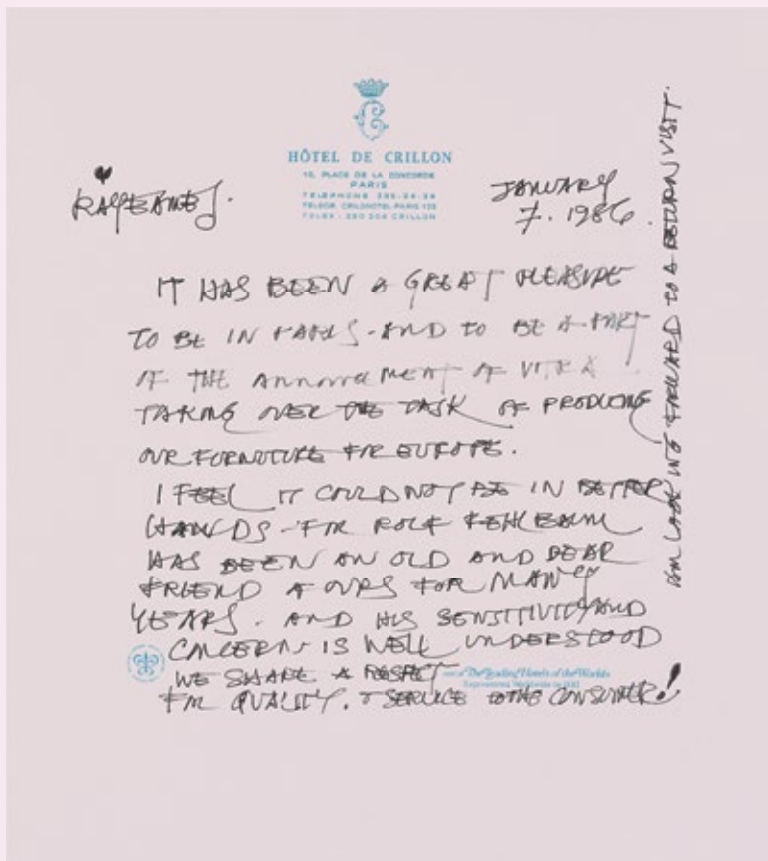 HÔTEL DE CRILLON
10, PLACE DE LA CONCORDE
PARIS
TELEPHONE 296-24-24
TELEX · 290 204 CRILLON
RAY EAMES.
JANUARY
7. 1986.
IT HAS BEEN A GREAT PLEASURE
TO BE IN PARIS - AND TO BE A PART
OF THE ANNOUNCEMENT OF VITRA
TAKING OVER THE TASK OF PRODUCING
OUR FURNITURE FOR EUROPE.
I FEEL IT COULD NOT BE IN BETTER
HANDS - FOR ROLF FEHLBAUM
HAS BEEN AN OLD AND DEAR
FRIEND OF OURS FOR MANY
YEARS. AND HIS SENSITIVITY AND
CONCERN IS WELL UNDERSTOOD
WE SHARE A RESPECT
FOR QUALITY. & SERVICE TO THE CONSUMER!
one of The Leading Hotels of the World
AM LOOKING FORWARD TO A RETURN VISIT.